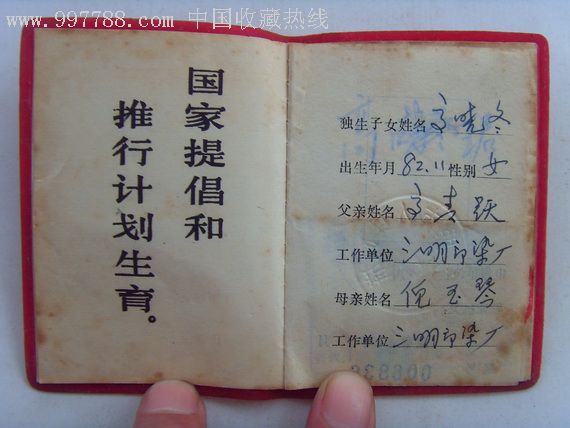 www.997788.com 中国收藏热线
国家提倡和
推行计划生育。
独生子女姓名 高晓冬
出生年月 82.11 性别 女
父亲姓名 高志跃
工作单位 三明印染厂
母亲姓名 倪玉琴
工作单位 三明印染厂